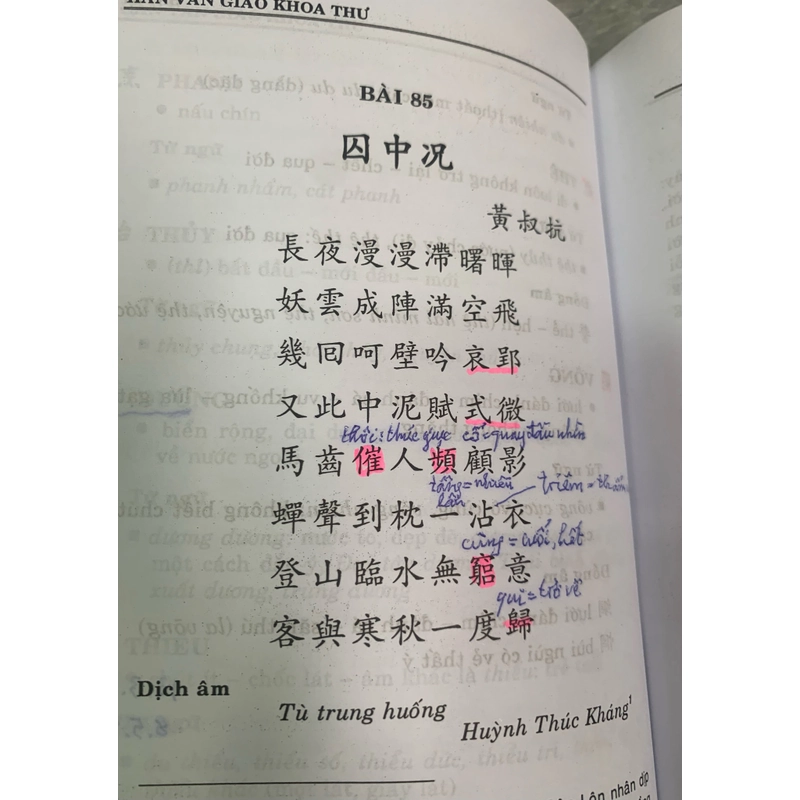 HÁN VĂN GIÁO KHOA THƯ
BÀI 85
囚中況
黃叔抗
長夜漫漫滯曙暉
妖雲成陣滿空飛
幾囘呵壁吟哀郢
又此中泥賦式微
thôi: thúc giục cố = quay đầu nhìn
馬齒催人頻顧影
tần = nhiều lần
triêm = thấm
蟬聲到枕一沾衣
cùng = cuối, hết
登山臨水無窮意
qui = trở về
客與寒秋一度歸
Dịch âm
Tù trung huống
Huỳnh Thúc Kháng¹